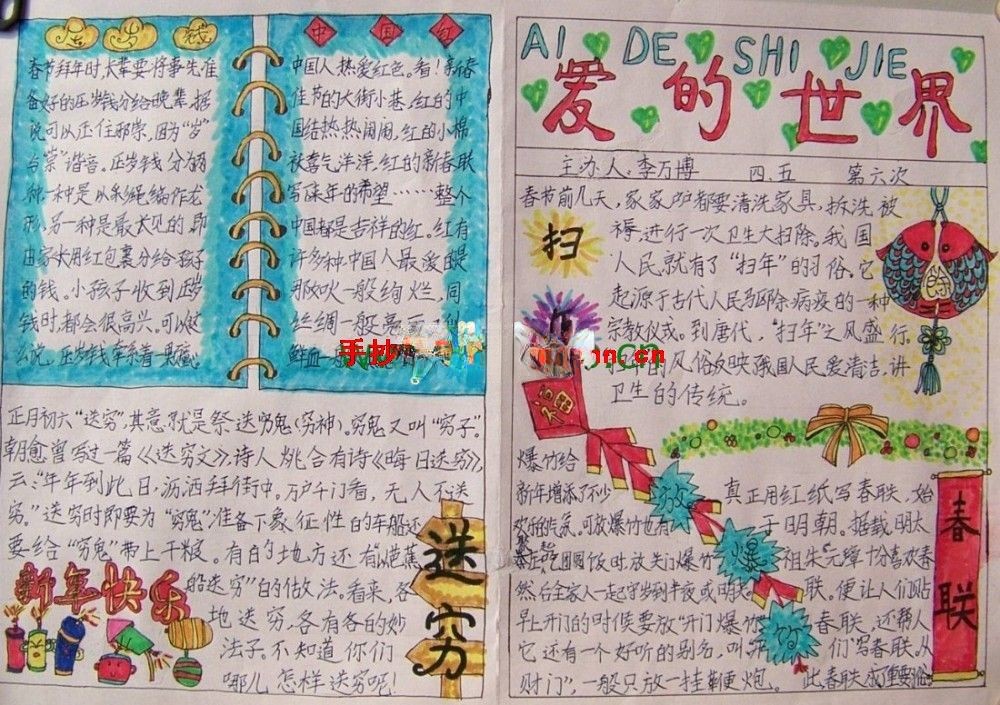 压岁钱
春节拜年时,长辈要将事先准
备好的压岁钱分给晚辈,据
说可以压住邪祟,因为“岁”
与“祟”谐音。压岁钱分为两
种,一种是以彩绳编作龙
形,另一种是最常见的,即
由家长用红包裹分给孩子
的钱。小孩子收到压岁
钱时,都会很高兴。可以这
么说,压岁钱牵系着一颗颗
中国红
中国人热爱红色。看!新春
佳节的大街小巷,红的中
国结热热闹闹,红的小棉
袄喜气洋洋,红的新春联
写满年的希望……整个
中国都是吉祥的红。红有
许多种,中国人最爱的是
那火一般绚烂,同
丝绸一般亮丽,似
鲜血一般
手抄
.cn
正月初六“送穷”,其意就是祭送穷鬼(穷神)。穷鬼又叫“穷子”。
韩愈曾写过一篇《送穷文》,诗人姚合有诗《晦日送穷》,
云:“年年到此日,沥洒拜街中。万户千门看,无人不送
穷。”送穷时即要为“穷鬼”准备下象征性的车船,还
要给“穷鬼”带上干粮。有的地方还有“烧芭蕉
船送穷”的做法。看来,各
地送穷,各有各的妙
法子。不知道你们
哪儿怎样送穷呢!
新年快乐
送穷
AI DE SHI JIE
爱的世界
主办人:李万博 四.五 第六次
扫
春节前几天,家家户户都要清洗家具,拆洗被
褥,进行一次卫生大扫除。我国
人民就有了“扫年”的习俗。它
起源于古代人民驱除病疫的一种
宗教仪式。到唐代,“扫年”之风盛行。
的风俗反映我国人民爱清洁,讲
卫生的传统。
除
福
放爆竹
爆竹给
新年增添了不少
欢乐的气氛。可放爆竹也有
吃团圆饭时放关门爆竹,
然后全家人一起守岁到半夜或明天
早上开门的时候要放“开门爆竹
它还有一个好听的别名,叫
财门”,一般只放一挂鞭炮。
真正用红纸写春联,始
于明朝。据载明太
祖朱元璋十分喜欢春
联,便让人们贴
春联,还帮人
们写春联,从
此,春联成了重要
春联